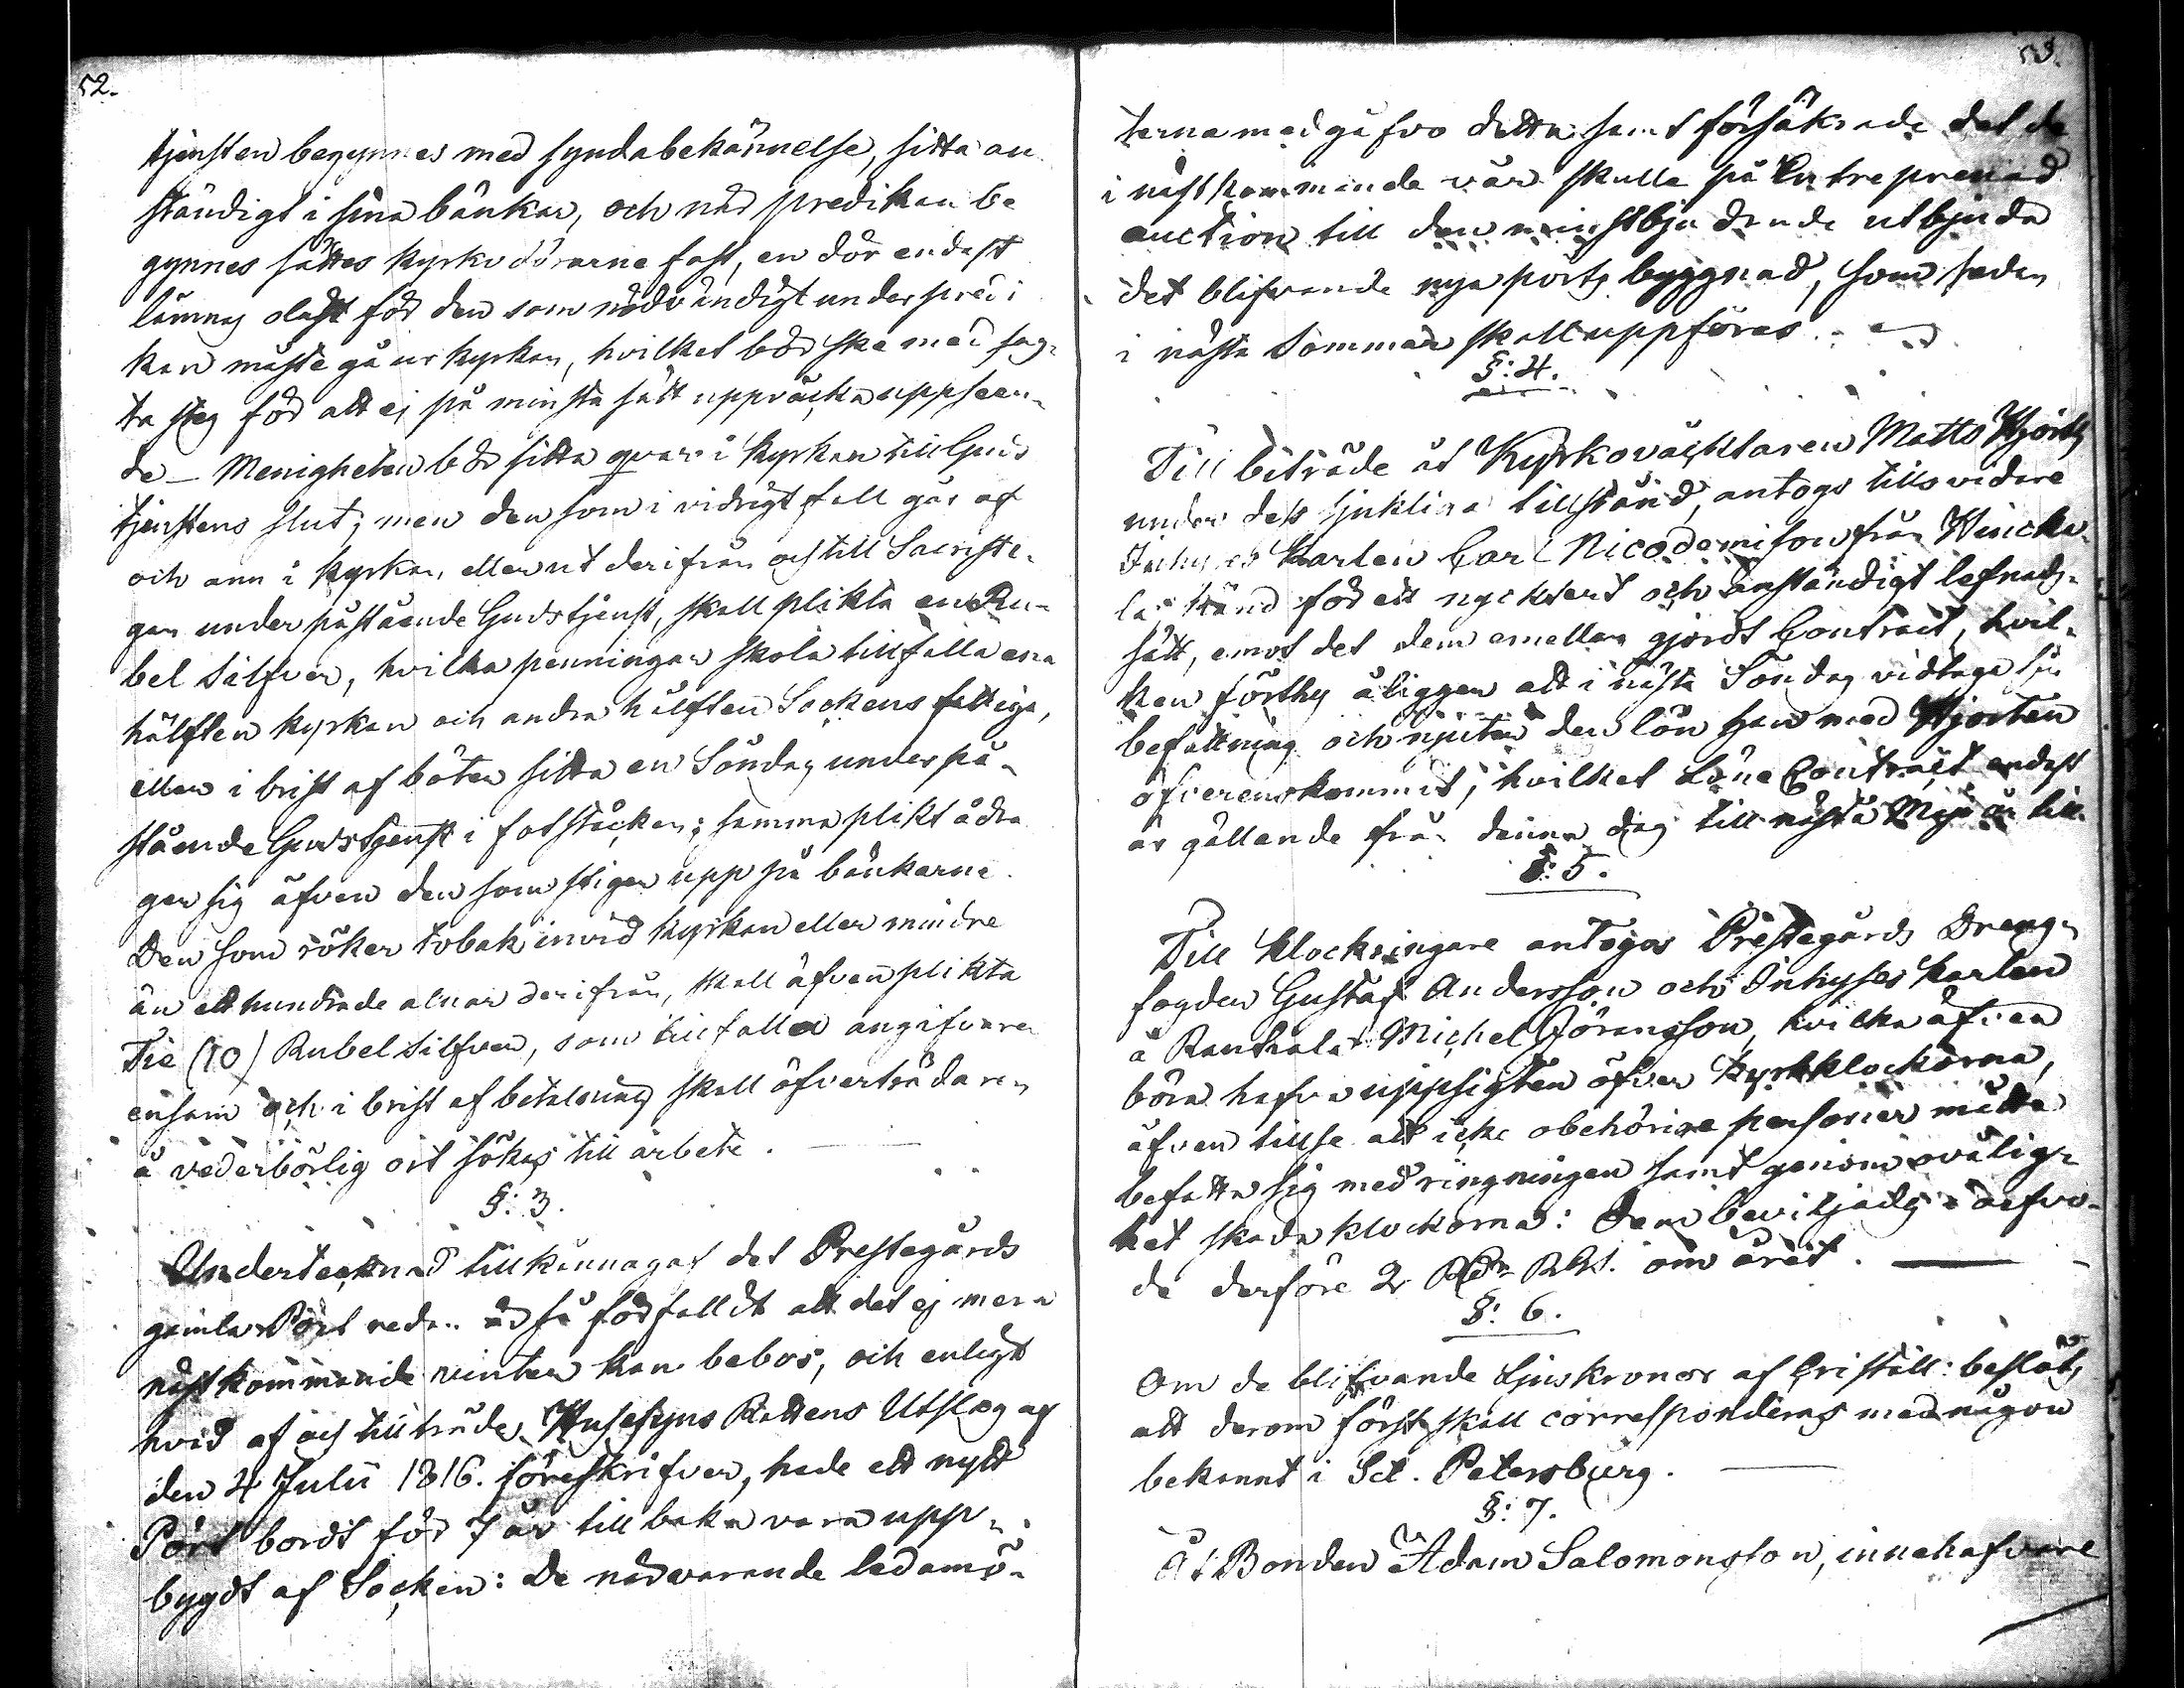 52.
tjensten begynnes med syndabekännelse, sitta an
ständigt i sina bänkar, och när predikan be
gynnes sättes kyrkodörarne fast, en dör endast
lämnas olåst för den som nödvändigt under predi
kan måste gå ur kyrkan, hvilket bör ske med sag-
ta steg för att ej på minsta sätt uppväcka uppseen-
de – Menigheten bör sitta qvar i kyrkan till Guds
tjenstens slut; men den som i vidrigt fall går af
och ann i kyrkan, eller ut derifrån och till Sacriste-
gan under påstående Gudstjenst, skall plikta en Ru-
bel Silfver, hvilka penningar skola tillfalla ena
hälften kyrkan och andra hälften Sockens fattiga,
eller i brist af böter sitta en Söndag under på-
stående Gudstjenst i fotstocken; samma plikt ådra
ger sig äfven den som stiger upp på bänkarne.
Den som röker tobak invid kyrkan eller mindre
än ett hundrade alnar derifrån, skall äfven plikta
Tie (10) Rubel Silfver, som tillfaller angifvaren
ensam och i brist af betalning skall öfverträdaren
å vederbörlig ort sökas till arbete.
§: 3.
Undertecknad tillkännagaf det Prestegårds
gamla Pört redan är så förfalldt att det ej mera
nästkommande vinter kan bebos, och enligt
hvad af och tillträdes Husesyns Rättens Utslag af
den 4 Julii 1816. föreskrifver, hade ett nytt
Pört bordt för 7 år tillbaka vara upp-
bygdt af Socken: De närvarande ledamö-
53.
terna medgåfvo detta samt försäkrade det de
i nästkommande vår skulle på Entreprenad
auction till den minstbjudande utbjuda
det blifvande nya pörts byggnad, som sedan
i nästa Sommar skall uppföras.
§: 4.
Till biträde åt Kyrkoväcktaren Matts Hjort,
under dess sjukliga tillstånd, antogs tills vidare
Inhyses Karlen Carl Nicodemison från
känd för ett nycktert och anständigt lefnads-
sätt, emot det dem emellan gjordt Contract, hvil-
ken förthy åligger att i nästa Söndag vidtaga sin
befattning och njuter den lön han med Hjorten
öfverenskommit, hvilket Löne Contract endast
är gällande från denna dag till nästa Maji än till.
§: 5.
Till Klockringare antogos Prestegårds Dreng-
fogden Gustaf Andersson och Inhyses Karlen
å Rantala Michel Göransson, hvilka äfven
böra hafva uppsigten öfver Kyrkklockorna,
äfven tillse att icke obehörige personer måtte
befatta sig med ringningen samt genom ovålig-
het skada klockorna: Dem beviljades i arfvo-
de derföre 2 om året.
§: 6.
Om de blifvande Ljuskronor af Cristall: beslöts
att derom först skall corresponderas med någon
bekannt i Sct. Petersburg.
§: 7.
Åt Bonden Adam Salomonsson, innehafvare